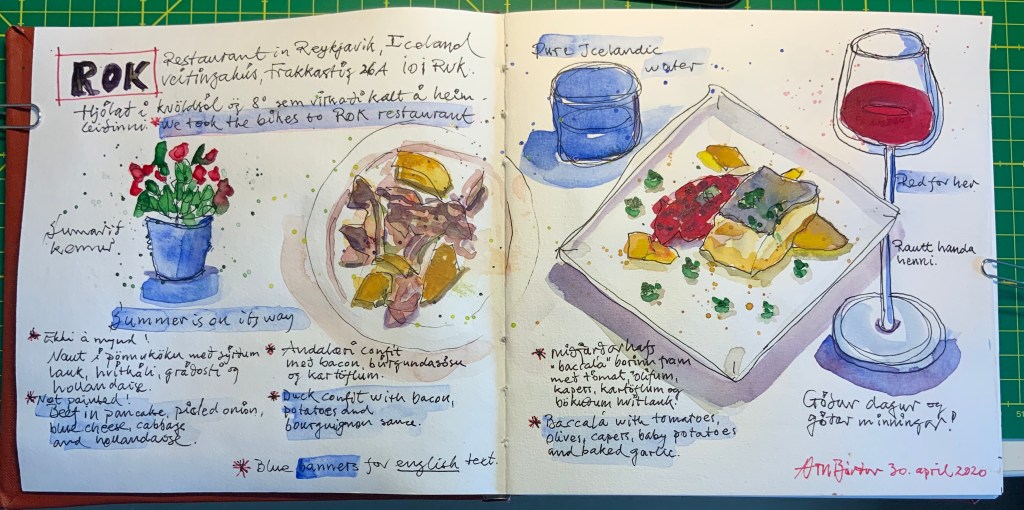 ROK
Restaurant in Reykjavik, Iceland
veitingahús, Frakkastíg 26A 101 RVK.
Hjólað í kvöldsól og 8° sem virkaði kalt á heim-
leiðinni.
* We took the bikes to ROK restaurant
Sumarið
kemur
Summer is on its way
* Ekki á mynd!
Naut í pönnuköku með sýrðum
lauk, hvítkáli, gráðosti og
hollandaise.
* Not painted!
Beef in pancake, picled onion,
blue cheese, cabbage
and hollandaise.
* Andalæri confit
með bacon, burgundasósu
og kartöflum.
* Duck confit with bacon,
potatoes and
bourguignon sauce.
* Blue banners for english text.
Pure Icelandic
water
Red for her
Rautt handa
henni.
* miðjarðarhafs
"baccala" borinn fram
með tómat, ólífum,
kapers, kartöflum og
bökuðum hvítlauk.
* Baccalá with tomatoes,
olives, capers, baby potatoes
and baked garlic.
Góður dagur og
góðar minningar!
30. april 2020